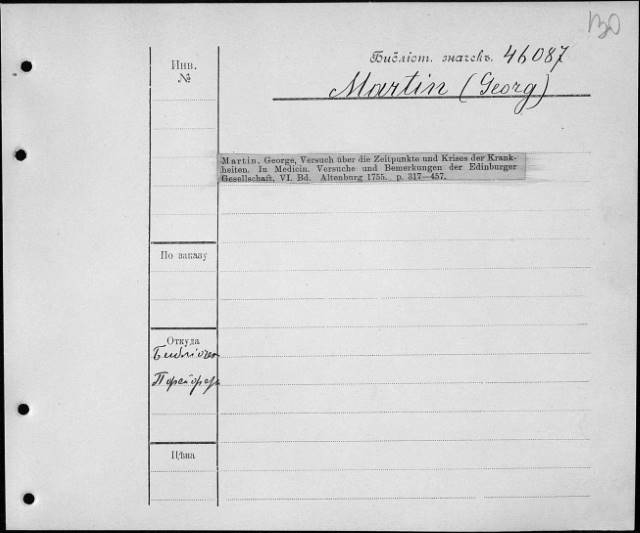 130
Инв.
№
Библіот. значекъ. 46087
Martin (Georg)
Martin, George, Versuch über die Zeitpunkte und Krises der Krank-
heiten. In Medicin. Versuche und Bemerkungen der Edinburger
Gesellschaft, VI. Bd. Altenburg 1755. p. 317—457.
По заказу
Откуда
Цѣна